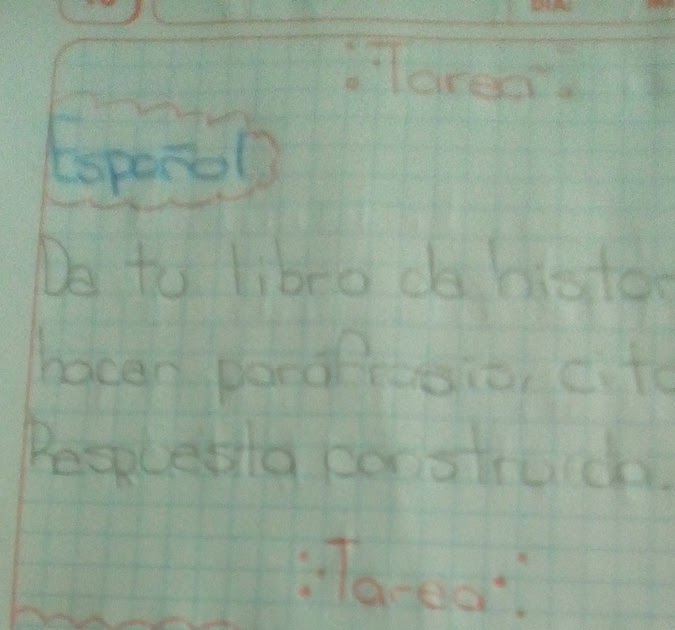 Tarea
Español
De tu libro de histor
hacer parafrasis, cita
Respuesta construida.
Tarea